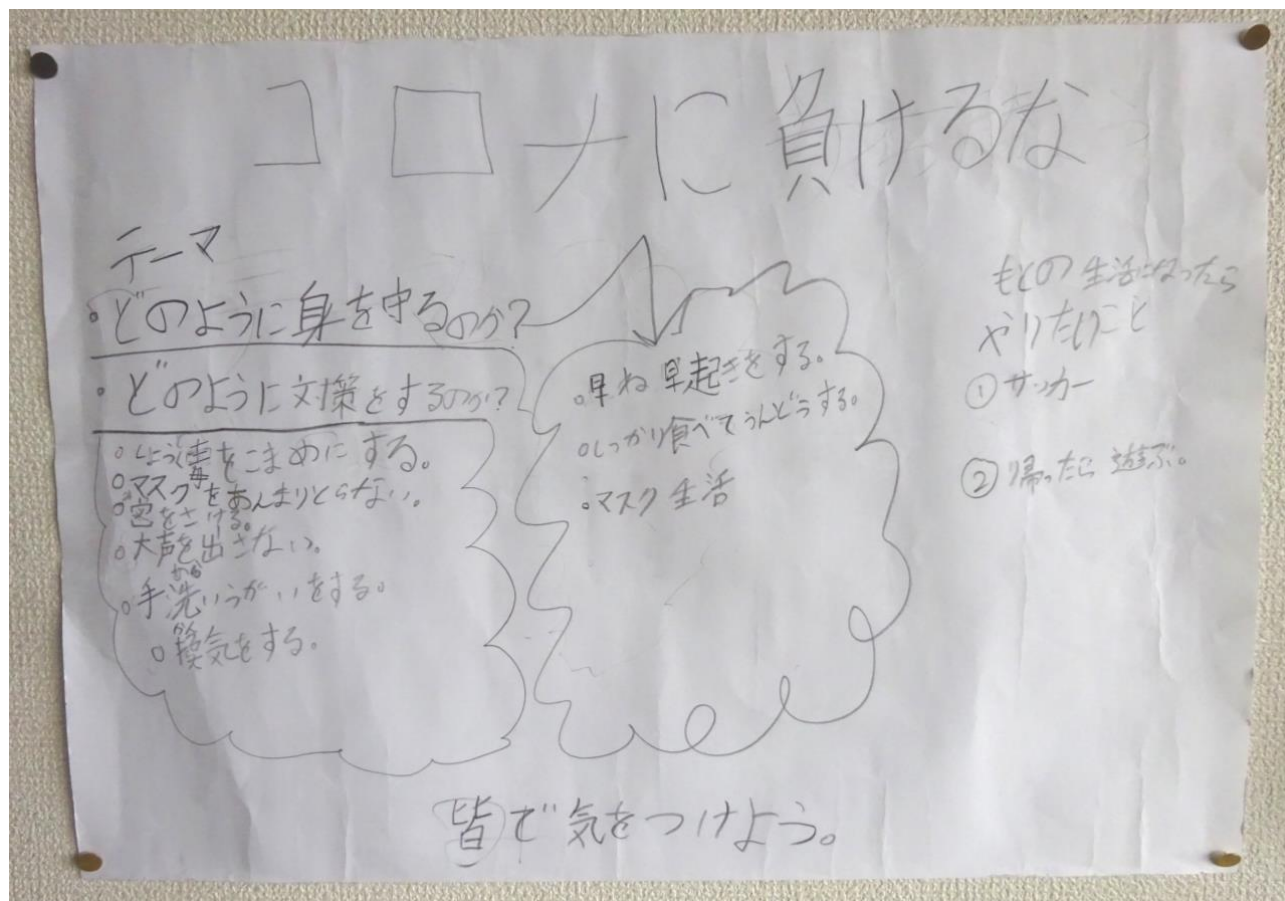 コロナに負けるな
テーマ
・どのように身を守るのか?
・どのように対策をするのか?
○しょうどく毒をこまめにする。
○マスクをあんまりとらない。
○密をさける。
○大声を出さない。
○手洗いうがいをする。
○換気をする。
○早ね早起きをする。
○しっかり食べてうんどうする。
○マスク生活
もとの生活になったら
やりたいこと
①サッカー
②帰ったら遊ぶ。
皆で気をつけよう。